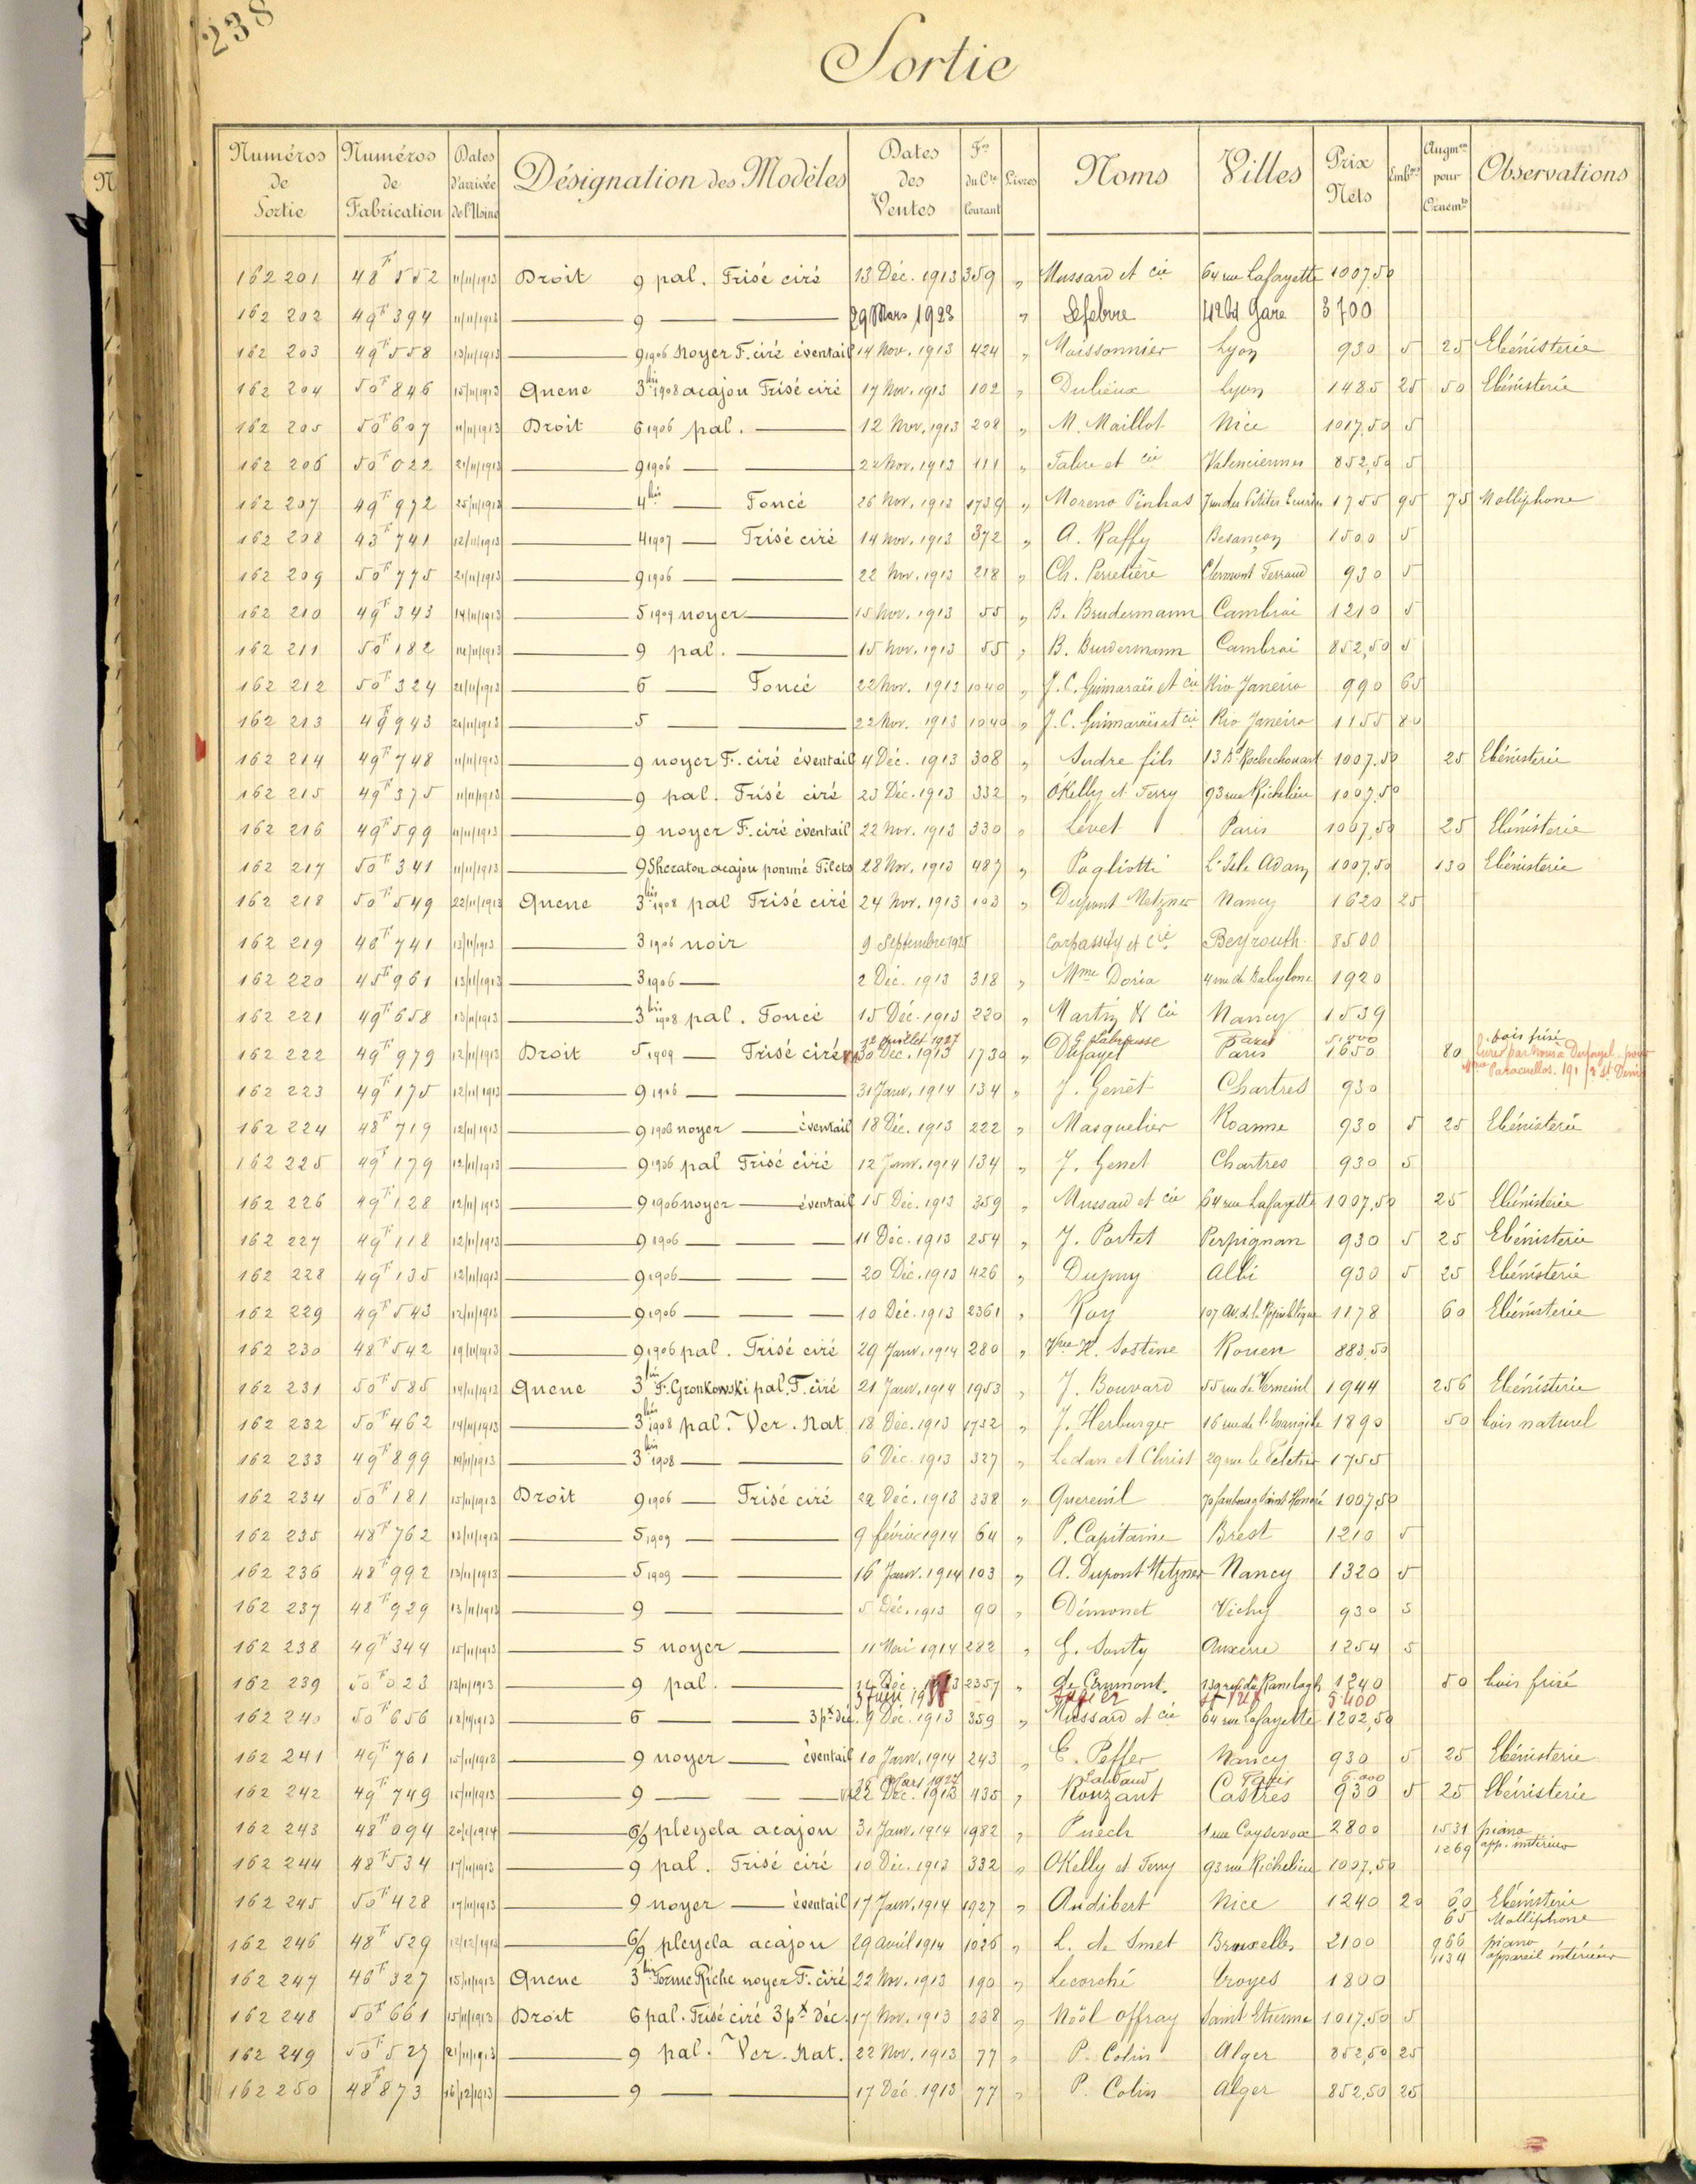 238
Sortie
Numéros de Sortie | Numéros de Fabrication | Dates d'arrivée de l'Usine | Désignation des Modèles | Dates des Ventes | Fos du Cte Courant | Livres | Noms | Villes | Prix Nets | Emb | Augm pour Ornem | Observations
162 201 48F552 11/11/1913 Droit 9 pal. Frisé ciré 13 Déc. 1913 359 " Mussard et cie 64 rue Lafayette 1007,50
162 202 49F394 11/11/1913 — 9 — — 29 Mars 1923 " Lefebvre 42 Bd Gare 3700
162 203 49F558 13/11/1913 — 9 1906 noyer F. ciré éventail 14 Nov. 1913 424 " Moissonnier Lyon 930 5 25 Ebénisterie
162 204 50F846 15/11/1913 Queue 3bis 1908 acajou Frisé ciré 17 Nov. 1913 102 " Dulieux Lyon 1485 25 50 Ebénisterie
162 205 50F607 11/11/1913 Droit 6 1906 pal. — 12 Nov. 1913 208 " M. Maillot Nice 1017,50 5
162 206 50F022 21/11/1913 — 9 1906 — — 22 Nov. 1913 111 " et cie Valenciennes 852,50 5
162 207 49F972 25/11/1913 — 4bis — Foncé 26 Nov. 1913 1739 " Moreno Pinhas 7 rue des Petites Ecuries 1755 95 75 Molliphone
162 208 43F741 12/11/1913 — 4 1907 — Frisé ciré 14 Nov. 1913 372 " A. Raffy Besançon 1500 5
162 209 50F775 21/11/1913 — 9 1906 — — 22 Nov. 1913 218 " Ch. Perretière Clermont Ferrand 930 5
162 210 49F343 14/11/1913 — 5 1909 noyer — 15 Nov. 1913 55 " B. Brudermann Cambrai 1210 5
162 211 50F182 14/11/1913 — 9 pal. — 15 Nov. 1913 55 " B. Cambrai 852,50 5
162 212 50F324 21/11/1913 — 6 — Foncé 22 Nov. 1913 1040 " J.C. Guimaraës et cie Rio Janeiro 990 65
162 213 49F943 21/11/1913 — 5 — — 22 Nov. 1913 1040 " J.C. Guimaraës et cie Rio Janeiro 1155 80
162 214 49F748 11/11/1913 — 9 noyer F. ciré éventail 4 Déc. 1913 308 " Sudre fils 13 Bd Rochechouart 1007,50 25 Ebénisterie
162 215 49F375 11/11/1913 — 9 pal. Frisé ciré 23 Déc. 1913 332 " O'Kelly et Ferry 93 rue Richelieu 1007,50
162 216 49F599 11/11/1913 — 9 noyer F. ciré éventail 22 Nov. 1913 330 " Levet Paris 1007,50 25 Ebénisterie
162 217 50F341 11/11/1913 — 9 Sheraton acajou pommé Filets 28 Nov. 1913 487 " Pogliotti L'Isle Adam 1007,50 130 Ebénisterie
162 218 50F549 22/11/1913 Queue 3bis 1908 pal Frisé ciré 24 Nov. 1913 103 " Dupont Metzner Nancy 1620 25
162 219 46F741 13/11/1913 — 3 1906 noir 9 Septembre 1925 Carpassity et Cie Beyrouth 8500
162 220 45F961 13/11/1913 — 3 1906 — 2 Déc. 1913 318 " Mme Doria 4 rue de Babylone 1920
162 221 49F658 13/11/1913 — 3bis 1908 pal. Foncé 15 Déc. 1913 220 " Martin & Cie Nancy 1539
1er Juillet 1927 Labrousse Paris 5.800 bois frisé
162 222 49F979 12/11/1913 Droit 5 1909 — Frisé ciré 30 Déc. 1913 1730 " Dufayel Paris 1650 80 livré par nous à Dufayel pour
Mme Paracuellos. 191 St Denis
162 223 49F175 12/11/1913 — 9 1906 — — 31 Janv. 1914 134 " J. Genet Chartres 930
162 224 48F719 12/11/1913 — 9 1906 noyer — éventail 18 Déc. 1913 222 " Masquelier Roanne 930 5 25 Ebénisterie
162 225 49F179 12/11/1913 — 9 1906 pal Frisé ciré 12 Janv. 1914 134 " J. Genet Chartres 930 5
162 226 49F128 12/11/1913 — 9 1906 noyer — éventail 15 Déc. 1913 359 " Mussard et cie 64 rue Lafayette 1007,50 25 Ebénisterie
162 227 49F118 12/11/1913 — 9 1906 — — — 11 Déc. 1913 254 " J. Portet Perpignan 930 5 25 Ebénisterie
162 228 49F135 12/11/1913 — 9 1906 — — — 20 Déc. 1913 426 " Dupuy Albi 930 5 25 Ebénisterie
162 229 49F543 12/11/1913 — 9 1906 — — — 10 Déc. 1913 2361 " Roy 107 Av. de la République 1178 60 Ebénisterie
162 230 48F542 19/11/1913 — 9 1906 pal. Frisé ciré 29 Janv. 1914 280 " Vve H. Sostène Rouen 883,50
162 231 50F585 14/11/1913 Queue 3bis F. Gronkowski pal. F. ciré 21 Janv. 1914 1953 " J. Bouvard 55 rue de Verneuil 1944 256 Ebénisterie
162 232 50F462 14/11/1913 — 3bis 1908 pal. Ver. Nat 18 Déc. 1913 1732 " J. Herburger 16 rue de l'Evangile 1890 50 bois naturel
162 233 49F899 19/11/1913 — 3bis 1908 — — 6 Déc. 1913 327 " Ledan et Christ 29 rue le Peletier 1755
162 234 50F181 15/11/1913 Droit 9 1906 — Frisé ciré 22 Déc. 1913 338 " Quereuil 70 faubourg Saint Honoré 1007,50
162 235 48F762 13/11/1913 — 5 1909 — — 9 février 1914 64 " P. Capitaine Brest 1210 5
162 236 48F992 13/11/1913 — 5 1909 — — 16 Janv. 1914 103 " A. Dupont Metzner Nancy 1320 5
162 237 48F929 13/11/1913 — 9 — — 5 Déc. 1913 90 " Démonet Vichy 930 5
162 238 49F344 15/11/1913 — 5 noyer — 11 Mai 1914 282 " G. Santy Auxerre 1254 5
162 239 50F023 13/11/1913 — 9 pal. — 12 Déc. 1913 2357 " de Crumont 139 rue du Ranelagh 1240 50 bois frisé
3 Juin 5.400
162 240 50F656 18/11/1913 — 6 — — 3 px déc. 9 Déc. 1913 359 " Mussard et cie 64 rue Lafayette 1202,50
162 241 49F761 15/11/1913 — 9 noyer — éventail 10 Janv. 1914 243 " E. Peffer Nancy 930 5 25 Ebénisterie
Mars 1927 Landaud Paris 6.000
162 242 49F749 15/11/1913 — 9 — — — 22 Déc. 1913 435 " Rouzant Castres 930 5 25 Ebénisterie
162 243 48F094 20/1/1914 — 6/9 pleyela acajou 31 Janv. 1914 1982 " Puech 1 rue Coysevox 2800 1531 piano
1269 app. intérieur
162 244 48F534 17/11/1913 — 9 pal. Frisé ciré 10 Déc. 1913 332 " O'Kelly et Ferry 93 rue Richelieu 1007,50
162 245 50F428 17/11/1913 — 9 noyer — éventail 17 Janv. 1914 1927 " Audibert Nice 1240 20 60 Ebénisterie
65 Molliphone
162 246 48F529 12/12/1913 — 6/9 pleyela acajou 29 avril 1914 1026 " L. de Smet Bruxelles 2100 966 piano
1134 appareil intérieur
162 247 46F327 15/11/1913 Queue 3bis Forme Riche noyer F. ciré 22 Nov. 1913 190 " Lecorché Troyes 1800
162 248 50F661 15/11/1913 Droit 6 pal. Frisé ciré 3 px Déc. 17 Nov. 1913 238 " Noël Offray Saint Etienne 1017,50 5
162 249 50F527 21/11/1913 — 9 pal. Ver. Nat. 22 Nov. 1913 77 " P. Colin Alger 852,50 25
162 250 48F873 16/12/1913 — 9 — — 17 Déc. 1913 77 " P. Colin Alger 852,50 25